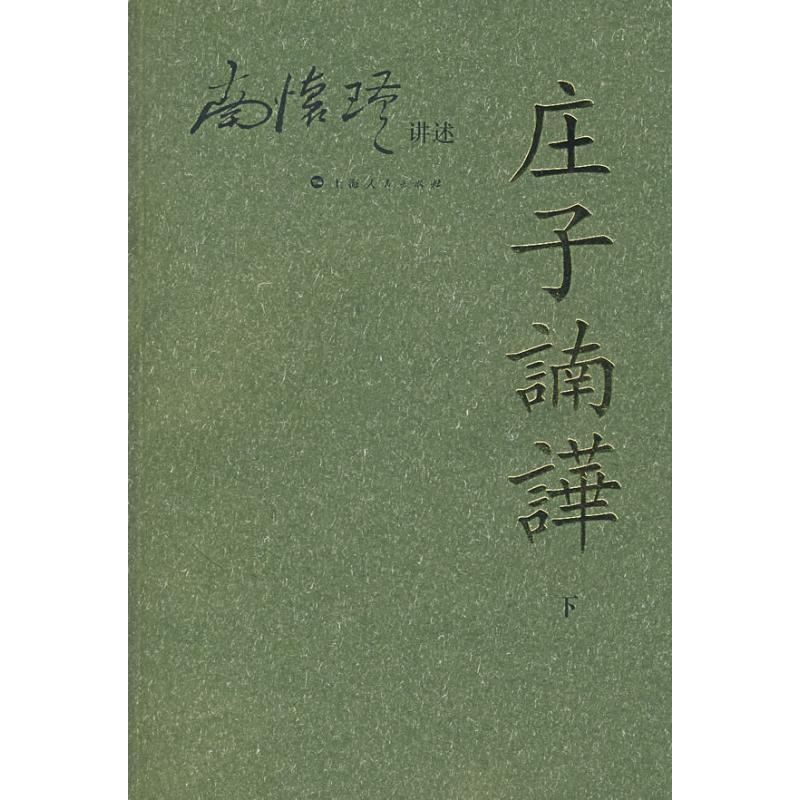 南怀瑾 讲述
上海人民出版社
庄子諵譁
下